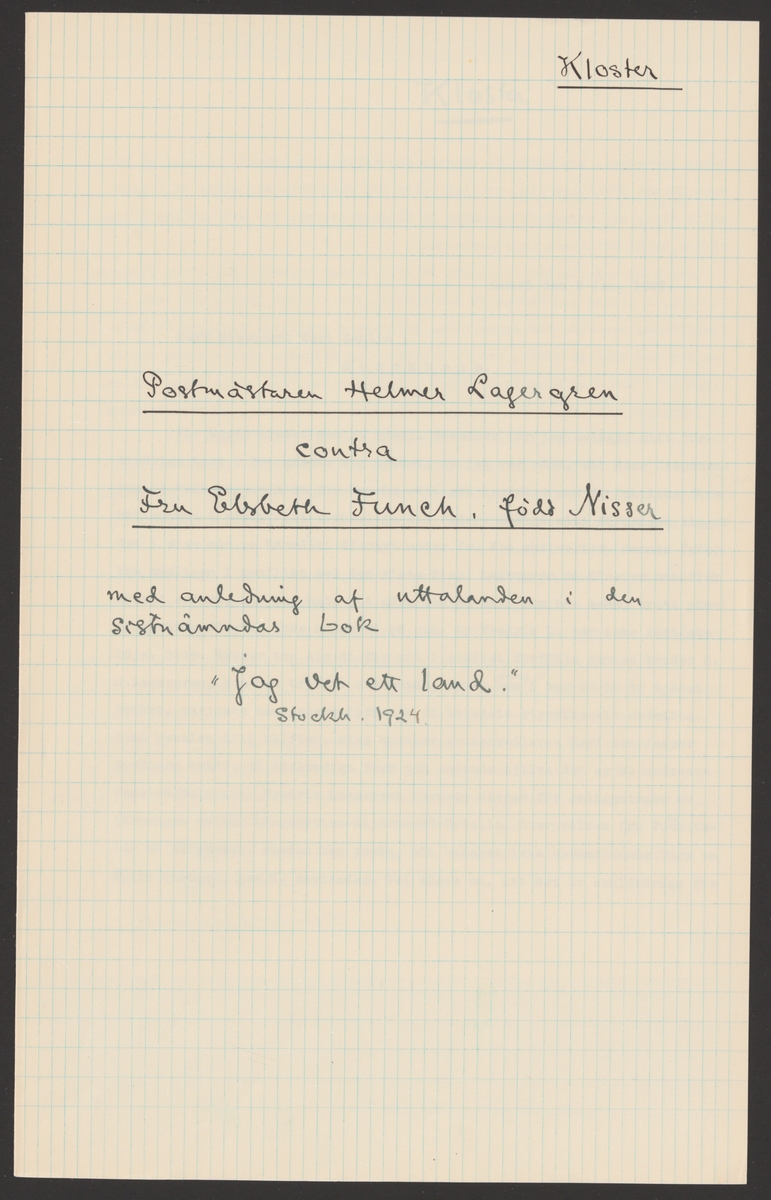 Kloster
Postmästaren Helmer Lagergren
contra
Fru Elsbeth Funch, född Nisser
med anledning af uttalanden i den
sistnämndas bok
"Jag vet ett land."
Stockh. 1924.